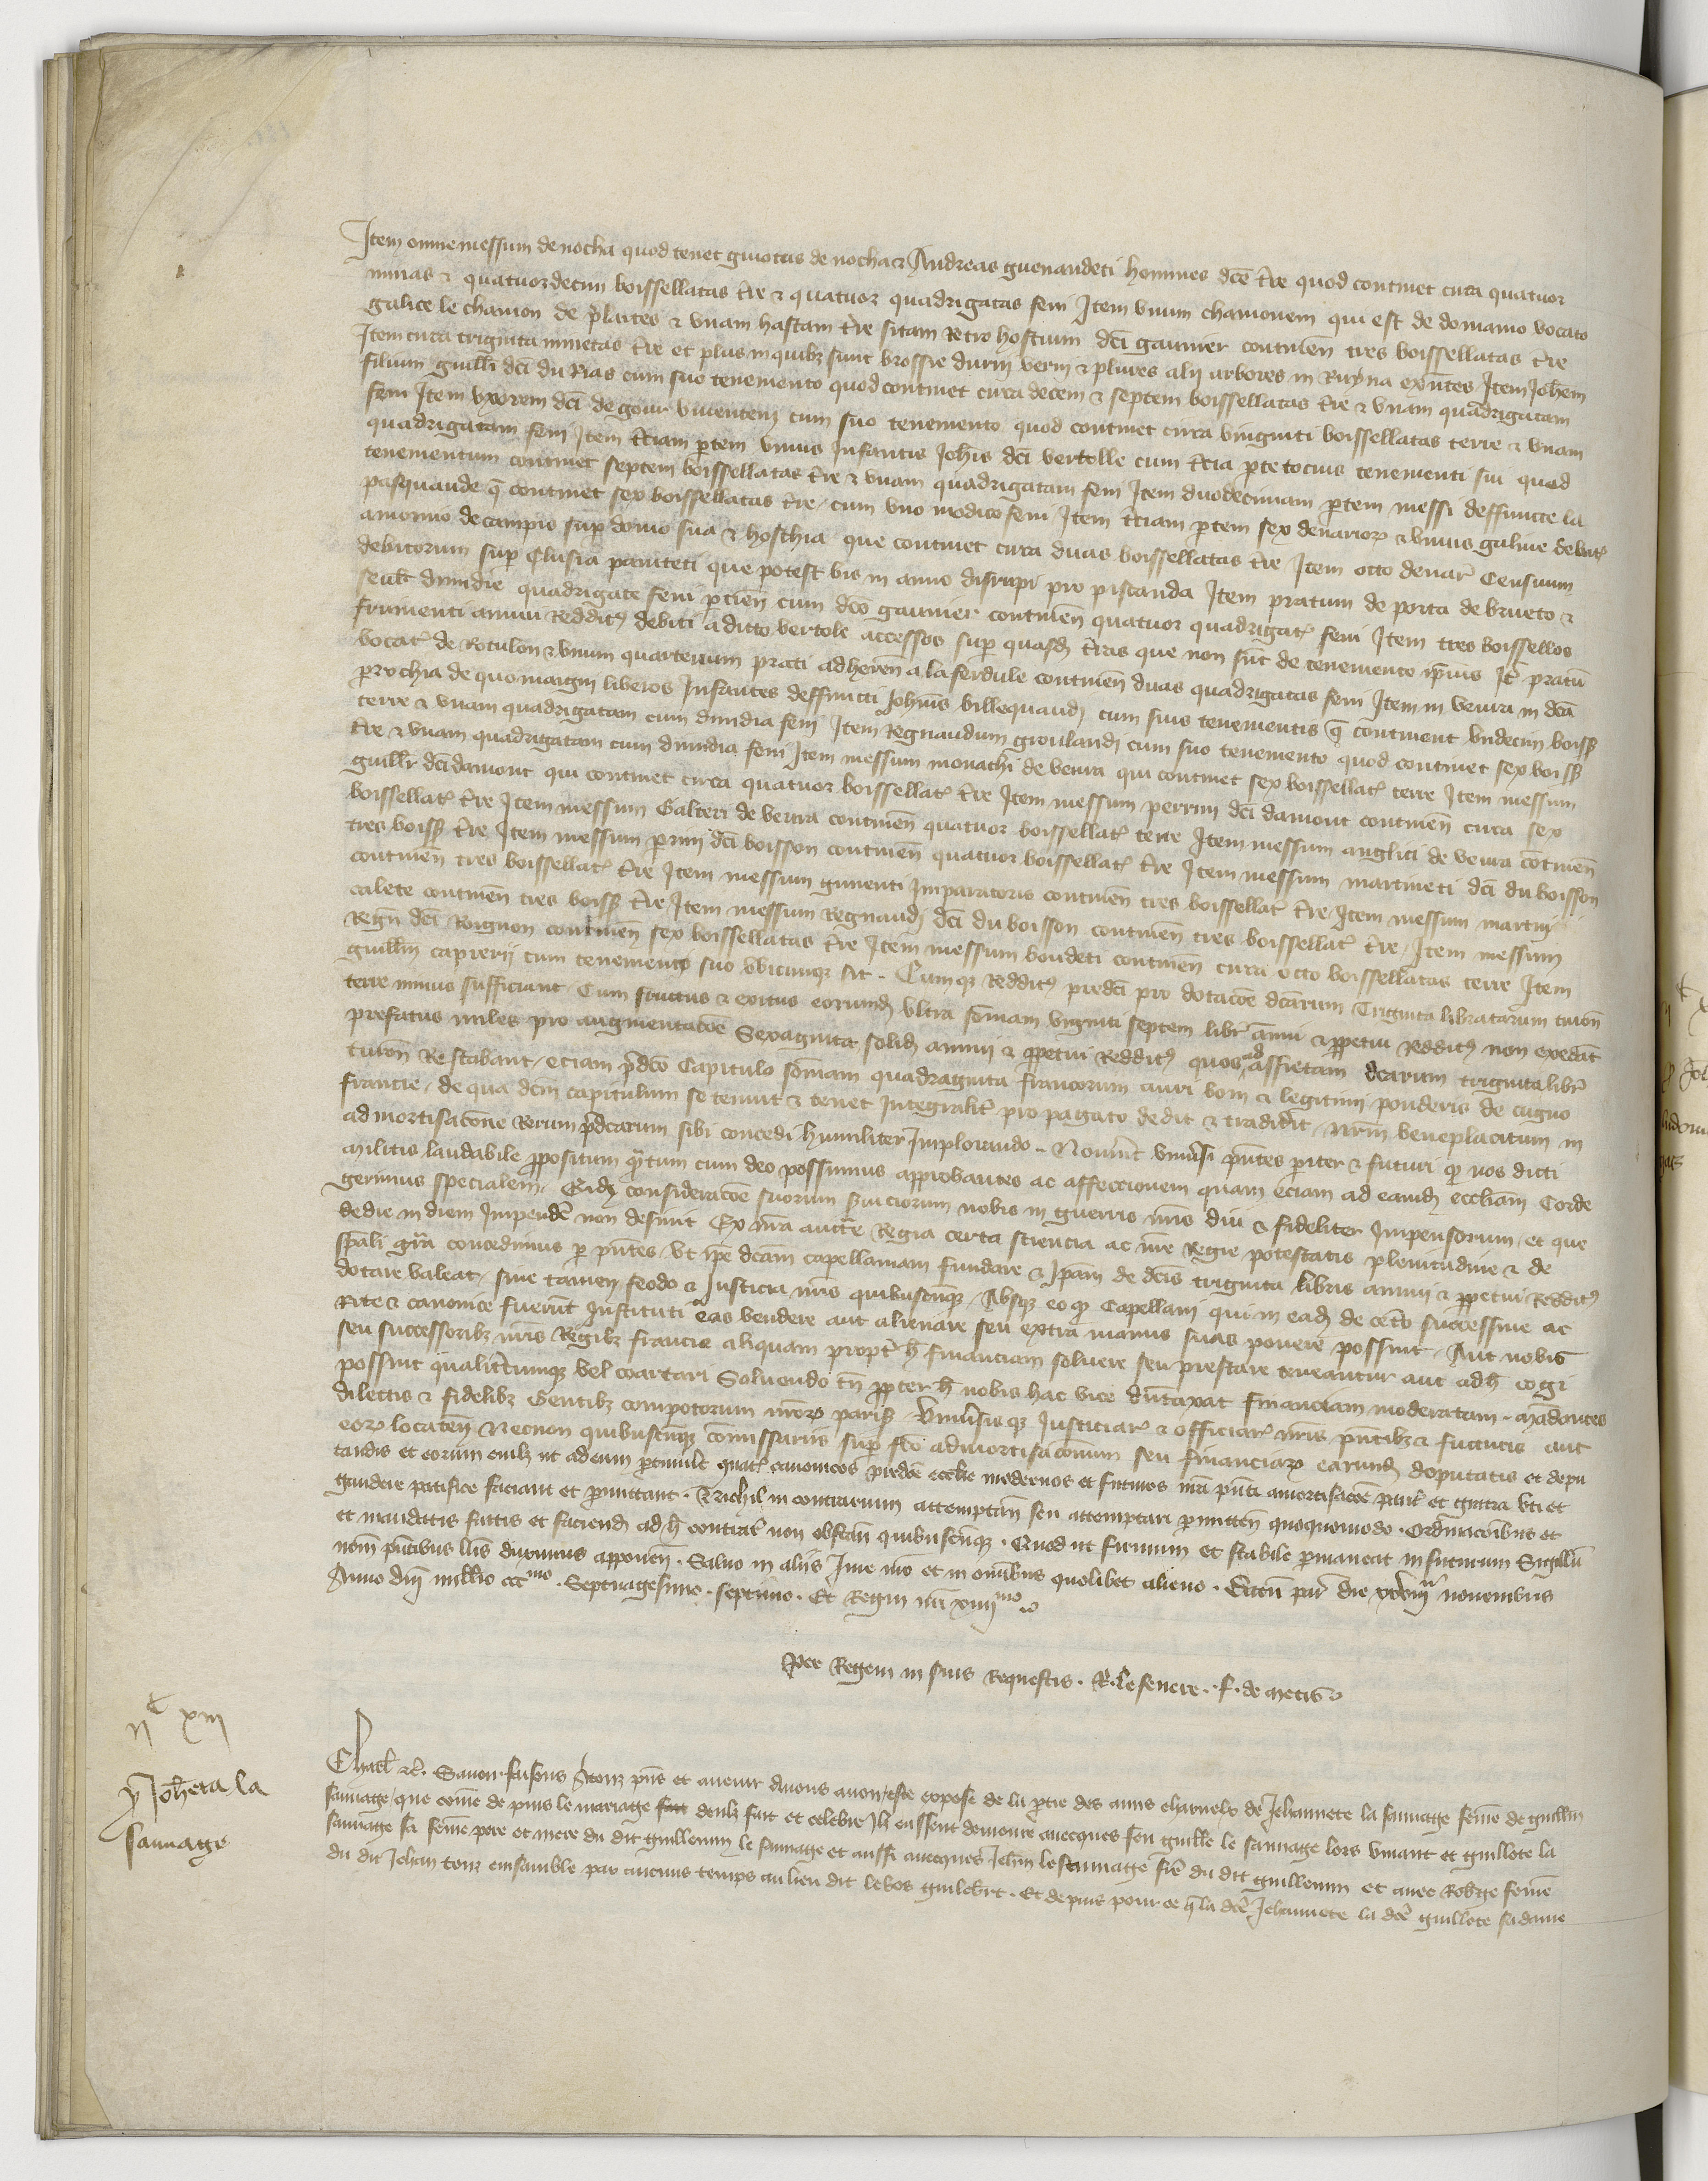 Item omne messum de nocha quod tenet guiotus de nocha & Andreas guenandeti homines dce t're quod continet circa quatuor
minas & quatuordecim boissellatas t're & quatuor quadrigatas feni Item unum chamonem qui est de domanio vocato
galice le chamon de plaites & unam hastam t're sitam retro hostium dci gaunier continen tres boissellatas t're
Item circa triginta minetas t're et plus in quibz sunt brossie durni verni & plures alii arbores in Ruyna exntes Item Johem
filium guilli dci du Rias cum suo tenemento quod continet circa decem & septem boissellatas t're & unam quadrigatam
feni Item uxorem dci de gour viventem cum suo tenemento quod continet circa vinginti boissellatas terre & unam
quadrigatam feni Item t'ciam ptem unius Infantis Johis dci vertolle cum t'cia pte tocius tenementi sui quod
tenementum continet septem boissellatas t're & unam quadrigatam feni Item duodecimam ptem messi deffuncte la
pasquaude q continet sex boissellatas t're cum uno modico feni Item t'ciam ptem sex denarior & unius galine debit
amonio de campis sup domo sua & hoschia que continet circa duas boissellatas t're Item octo denar Censuum
debitorum sup Clusia paniteti que potest bis in anno disrupi pro piscanda Item pratum de porta de brueto &
seubt dimidie quadrigate feni pcien cum dco gaunier continen quatuor quadrigat feni Item tres boissellos
frumenti annui Reddit debiti a dicto vertole accessos sup quasd t'ris que non sunt de tenemento ipsius It pratu
vocat de Rotulon & unum quarterium prati adheren a la ferdule continen duas quadrigatas feni Item in veura in dca
prochia de quomaigni liberos Infantes deffuncti Johnis billequaud cum suis tenementis q continent undecim boiss
terre & unam quadrigatam cum dimidia feni Item Regnaudum groulaudi cum suo tenemento quod continet sex boiss
t're & unam quadrigatam cum dimidia feni Item messum monachi de veura qui continet sex boissellat terre Item messum
guillr dci damont qui continet circa quatuor boissellat t're Item messum perrini dci damont continen circa sex
boissellat t're Item messum Galteri de veura continen quatuor boissellat terre Item messum anglici de veura continen
tres boiss t're Item messum prini dci boisson continen quatuor boissellat t're Item messum martineti dci du boisson
continen tres boissellat t're Item messum guneuti Imparatoris continen tres boissellat t're Item messum martini
calete continen tres boiss t're Item messum Regnaudi dci du boisson continen tres boissellat t're Item messum
Regn dci Roignon continen sex boissellatas t're Item messum boudeti continen circa octo boissellatas terre Item
guillm caprerii cum tenemento suo ubicunque sit . Cumque Reddit predci pro dotacoe dcarum Triginta libratarum turon
terre minus sufficiant Cum fructus & exitus eorumd ultra somam viginti septem libr annui & ppetui reddit non exedat
prefatus miles pro augmentacoe Sexaginta solid annui & ppetui Reddit quos ad assietam dcarum triginta libr
turon Restabant eciam pdco Capitulo somam quadraginta francorum auri boni & legitimi ponderis de cugno
francie de qua dcm capitulum se tenuit & tenet Integralit pro pagato dedit & tradidit nrm beneplacitum in
admortisacone Rerum pdcarum sibi concedi humiliter Implorando . Noverint univsi pntes pariter & futuri q nos dicti
militis laudabile ppositum qtum cum deo possumus approbantes ac affectionem quam eciam ad eamd eccliam Corde
gerimus specialem Eidq consideracoe suorum sviciorum nobis in guerris nris diu & fideliter Impensorum et que
de die in diem Impende non desinit Ex nra auctte Regia certa sciencia ac nre Regie potestatis plenitudine & de
spali gra concedimus p pntes Ut ipe dcam capellaniam fundare & Ipam de dcis triginta libris annui & ppetui Reddit
dotare valeat sine tamen feodo & Justicia nris quibuscunq Absque eo q Capellani qui in ead de ceto successive ac
Rite & canonice fuerint Instituti eas vendere aut alienare seu extra manus suas ponere possint Aut nobis
seu successoribz nris Regibz francie aliquam propt h financiam solvere seu prestare teneantur aut ad h cogi
possint qualitcumque vel coartari Solvendo tn ppter h nobis hac vice duntaxat financiam moderatam . Mandantes
dilectis & fidelibz Gentibz compotorum nror paris Univsisque Justiciar & officiar nris pntibz & futuris aut
eor locaten Necnon quibuscunq comissariis sup fco admortisacionum seu financiar earund deputatis et depu
tandis et eorum cuilz ut ad eum ptinuit quat canonicos predce ecclie modernos et futuros nra pnti amortisacoe pait et gratia uti et
gaudere pacifice faciant et pmittant . Nichil in contrarium attemptan seu attemptari pmitten quoquomodo . Ordinacionibus et
et mandatis factis et faciend ad h contrar non obstan quibuscunq . Quod ut firmum et stabile pmaneat in futurum Sigillu
nrm pntibus lris duximus apponen . Salvo in aliis Jure nro et in omibus quolibet alieno . Datu par die xxviij novembris
Anno dni millio ccc mo . Septuagesimo . septimo . Et Regni nri xiiij mo
Per Regem in suis Requestis . R . le fevere . . f . de metis
n c xiij
p Joheta la
sauvage
Charl etc . Savoir faisons A touz pns et avenir Avons avoir este expose de la ptie des amis charnelx de Jehannete la sauvage feme de guillm
sauvage que come de puis le mariage fait deulx fait et celebre Ilz eussent demoure avecques feu guille le sauvage lors vivant et guillote la
sauvage sa feme pere et mere du dit guillemin le sauvage et aussi avecques Jehan le sauvage fre du dit guillemin et avec Robge feme
du dit Jehan touz ensamble par aucuns temps au lieu dit le bos guilebt . Et depuis pour ce q la dce Jehannete la dce guillote sa dame